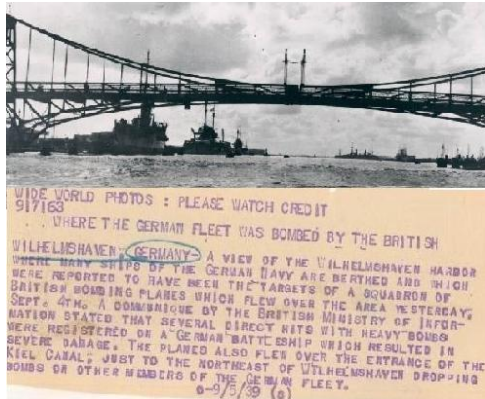 WIDE WORLD PHOTOS : PLEASE WATCH CREDIT
917163
WHERE THE GERMAN FLEET WAS BOMBED BY THE BRITISH
WILHELMSHAVEN- GERMANY- A VIEW OF THE WILHELMSHAVEN HARBOR
WHERE MANY SHIPS OF THE GERMAN NAVY ARE BERTHED AND WHICH
WERE REPORTED TO HAVE BEEN THE TARGETS OF A SQUADRON OF
BRITISH BOMBING PLANES WHICH FLEW OVER THE AREA YESTERDAY,
SEPT. 4TH. A COMMUNIQUE OF THE BRITISH MINISTRY OF INFOR-
MATION STATED THAT SEVERAL DIRECT HITS WITH HEAVY BOMBS
WERE REGISTERED ON A GERMAN BATTLESHIP WHICH RESULTED IN
SEVERE DAMAGE. THE PLANED ALSO FLEW OVER THE ENTRANCE OF THE
KIEL CANAL, JUST TO THE NORTHEAST OF WILHELMSHAVEN DROPPING
BOMBS OR OTHER MEMBERS OF THE GERMAN FLEET.
O-9/5/39 (O)